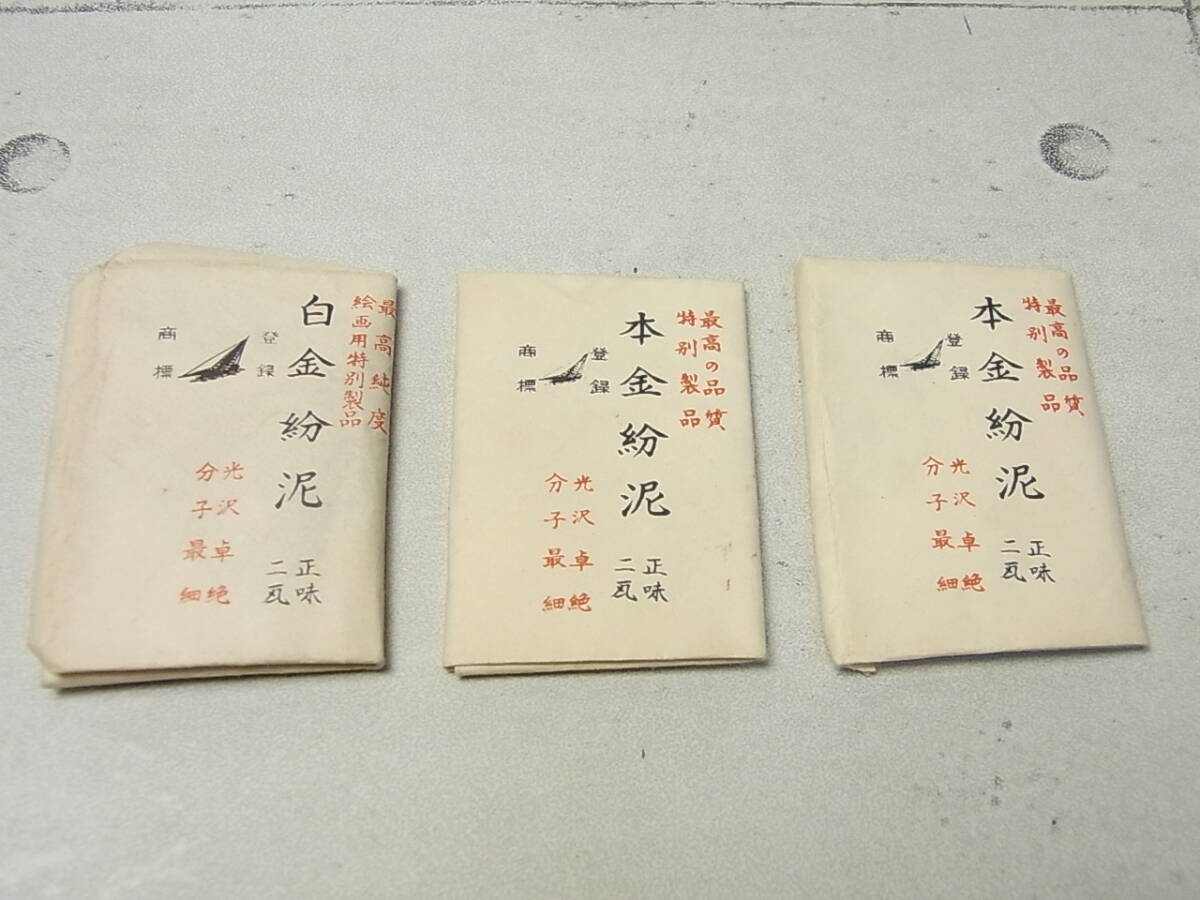 最高純度
絵画用特別製品
白金紛泥
正味
二瓦
登録
商標
光沢卓絶
分子最細
最高の品質
特別製品
本金紛泥
正味
二瓦
登録
商標
光沢卓絶
分子最細
最高の品質
特別製品
本金紛泥
正味
二瓦
登録
商標
光沢卓絶
分子最細